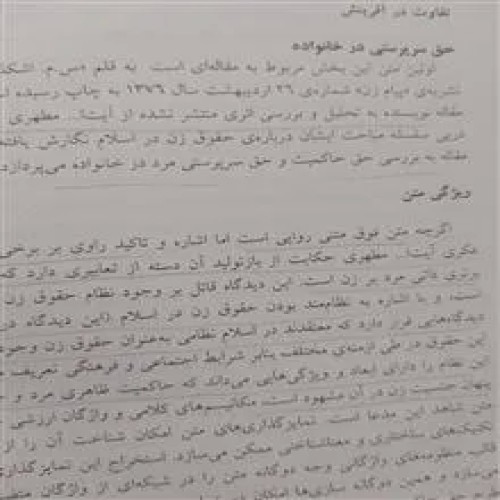 تفاوت در آفرینش
حق سرپرستی در خانواده
اولین متن این بخش مربوط به مقاله‌ای است به قلم «س.م. اشک
نشریه‌ی «پیام زن» شماره‌ی ۲۶ اردیبهشت سال ۱۳۷۶ به چاپ رسیده
مقاله نویسنده به تحلیل و بررسی اثری منتشر نشده از آیت‌ا... مطهری
درپی سلسله مباحث ایشان درباره‌ی حقوق زن در اسلام نگارش یافته
مقاله به بررسی حق حاکمیت و حق سرپرستی مرد در خانواده می‌پردازد
ویژگی متن
اگرچه متن فوق متنی روایی است اما اشاره و تاکید راوی بر برخی
فکری آیت‌ا... مطهری حکایت از بازتولید آن دسته از تعابیری دارد که
برتری ذاتی مرد بر زن است. این دیدگاه قائل بر وجود نظام حقوق زن
است، و با اشاره به نظام‌مند بودن حقوق زن در اسلام (این دیدگاه در
دیدگاه‌هایی قرار دارد که معتقدند در اسلام نظامی به‌عنوان حقوق زن وجود
این حقوق در طی ازمنه‌ی مختلف بنابر شرایط اجتماعی و فرهنگی تعریف
این نظام را دارای ابعاد و ویژگی‌هایی می‌داند که حاکمیت ظاهری مرد و
پنهان جنسیت زن در آن مشهود است. مکانیسم‌های کلامی و واژگان ارزشی
متن شاهد این مدعا است. تمایزگذاری‌های متن امکان شناخت آن را از
تکنیک‌های ساختاری و معناشناختی ممکن می‌سازد. استخراج این تمایزگذاری
قالب منظومه‌های واژگانی وجه دوگانه متن را در شبکه‌ای از واژگان
می‌سازد و همین دوگانه سازی‌ها امکان